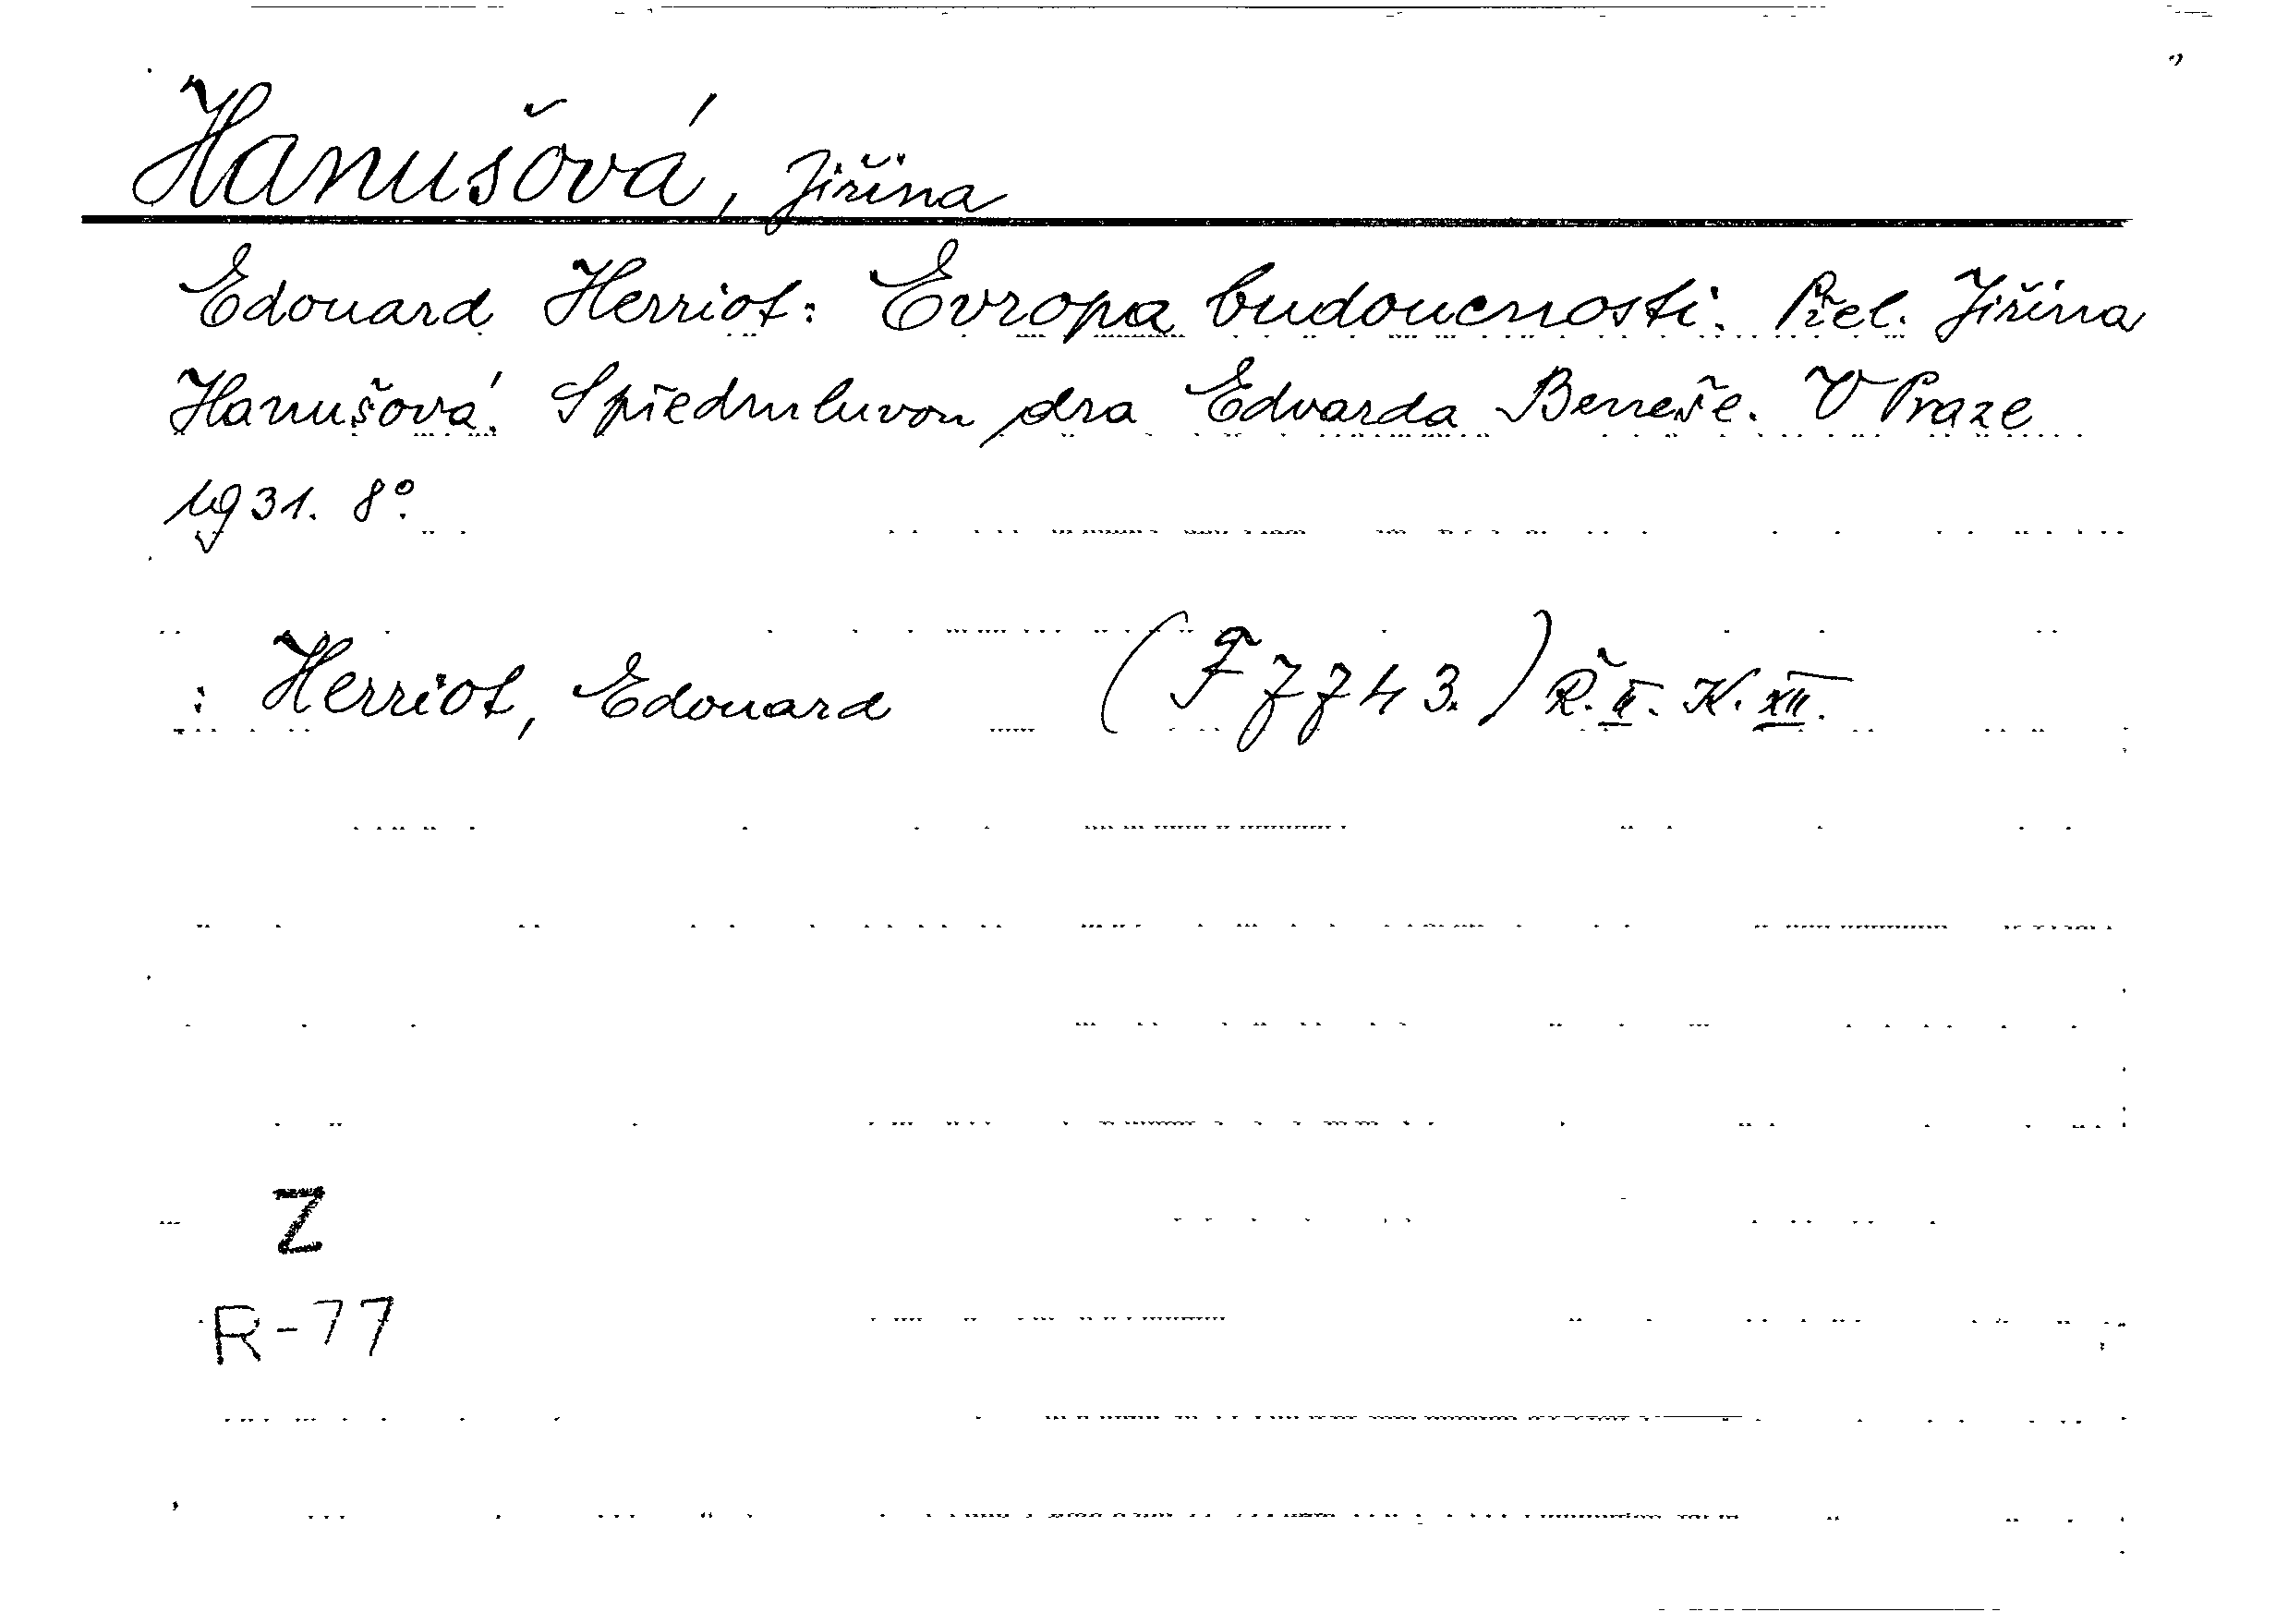 Hanušová, Jiřina
Edouard Herriot: Evropa budoucnosti. Přel. Jiřina
Hanušová. S předmluvou dra Edvarda Beneše. V Praze
1931. 8°.
: Herriot, Edouard (F 7743.) Ř. II. K. XII.
Z
R-77